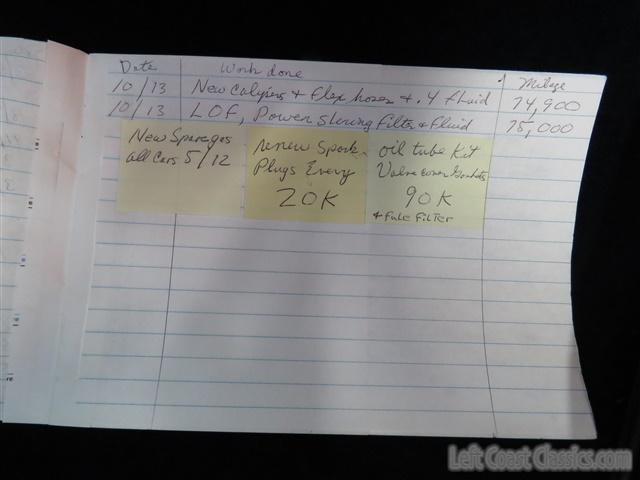 Date Work done Milage
10/13 New calipers + flex hoses + .4 fluid 74,900
10/13 LOF, Power Stering Filter + Fluid 75,000
New Spare gas
all Cars 5/12
renew Spark
Plugs Every
20K
oil tube Kit
Valve cover Gaskets
90K
+ Fule Filter
Left Coast Classics.com